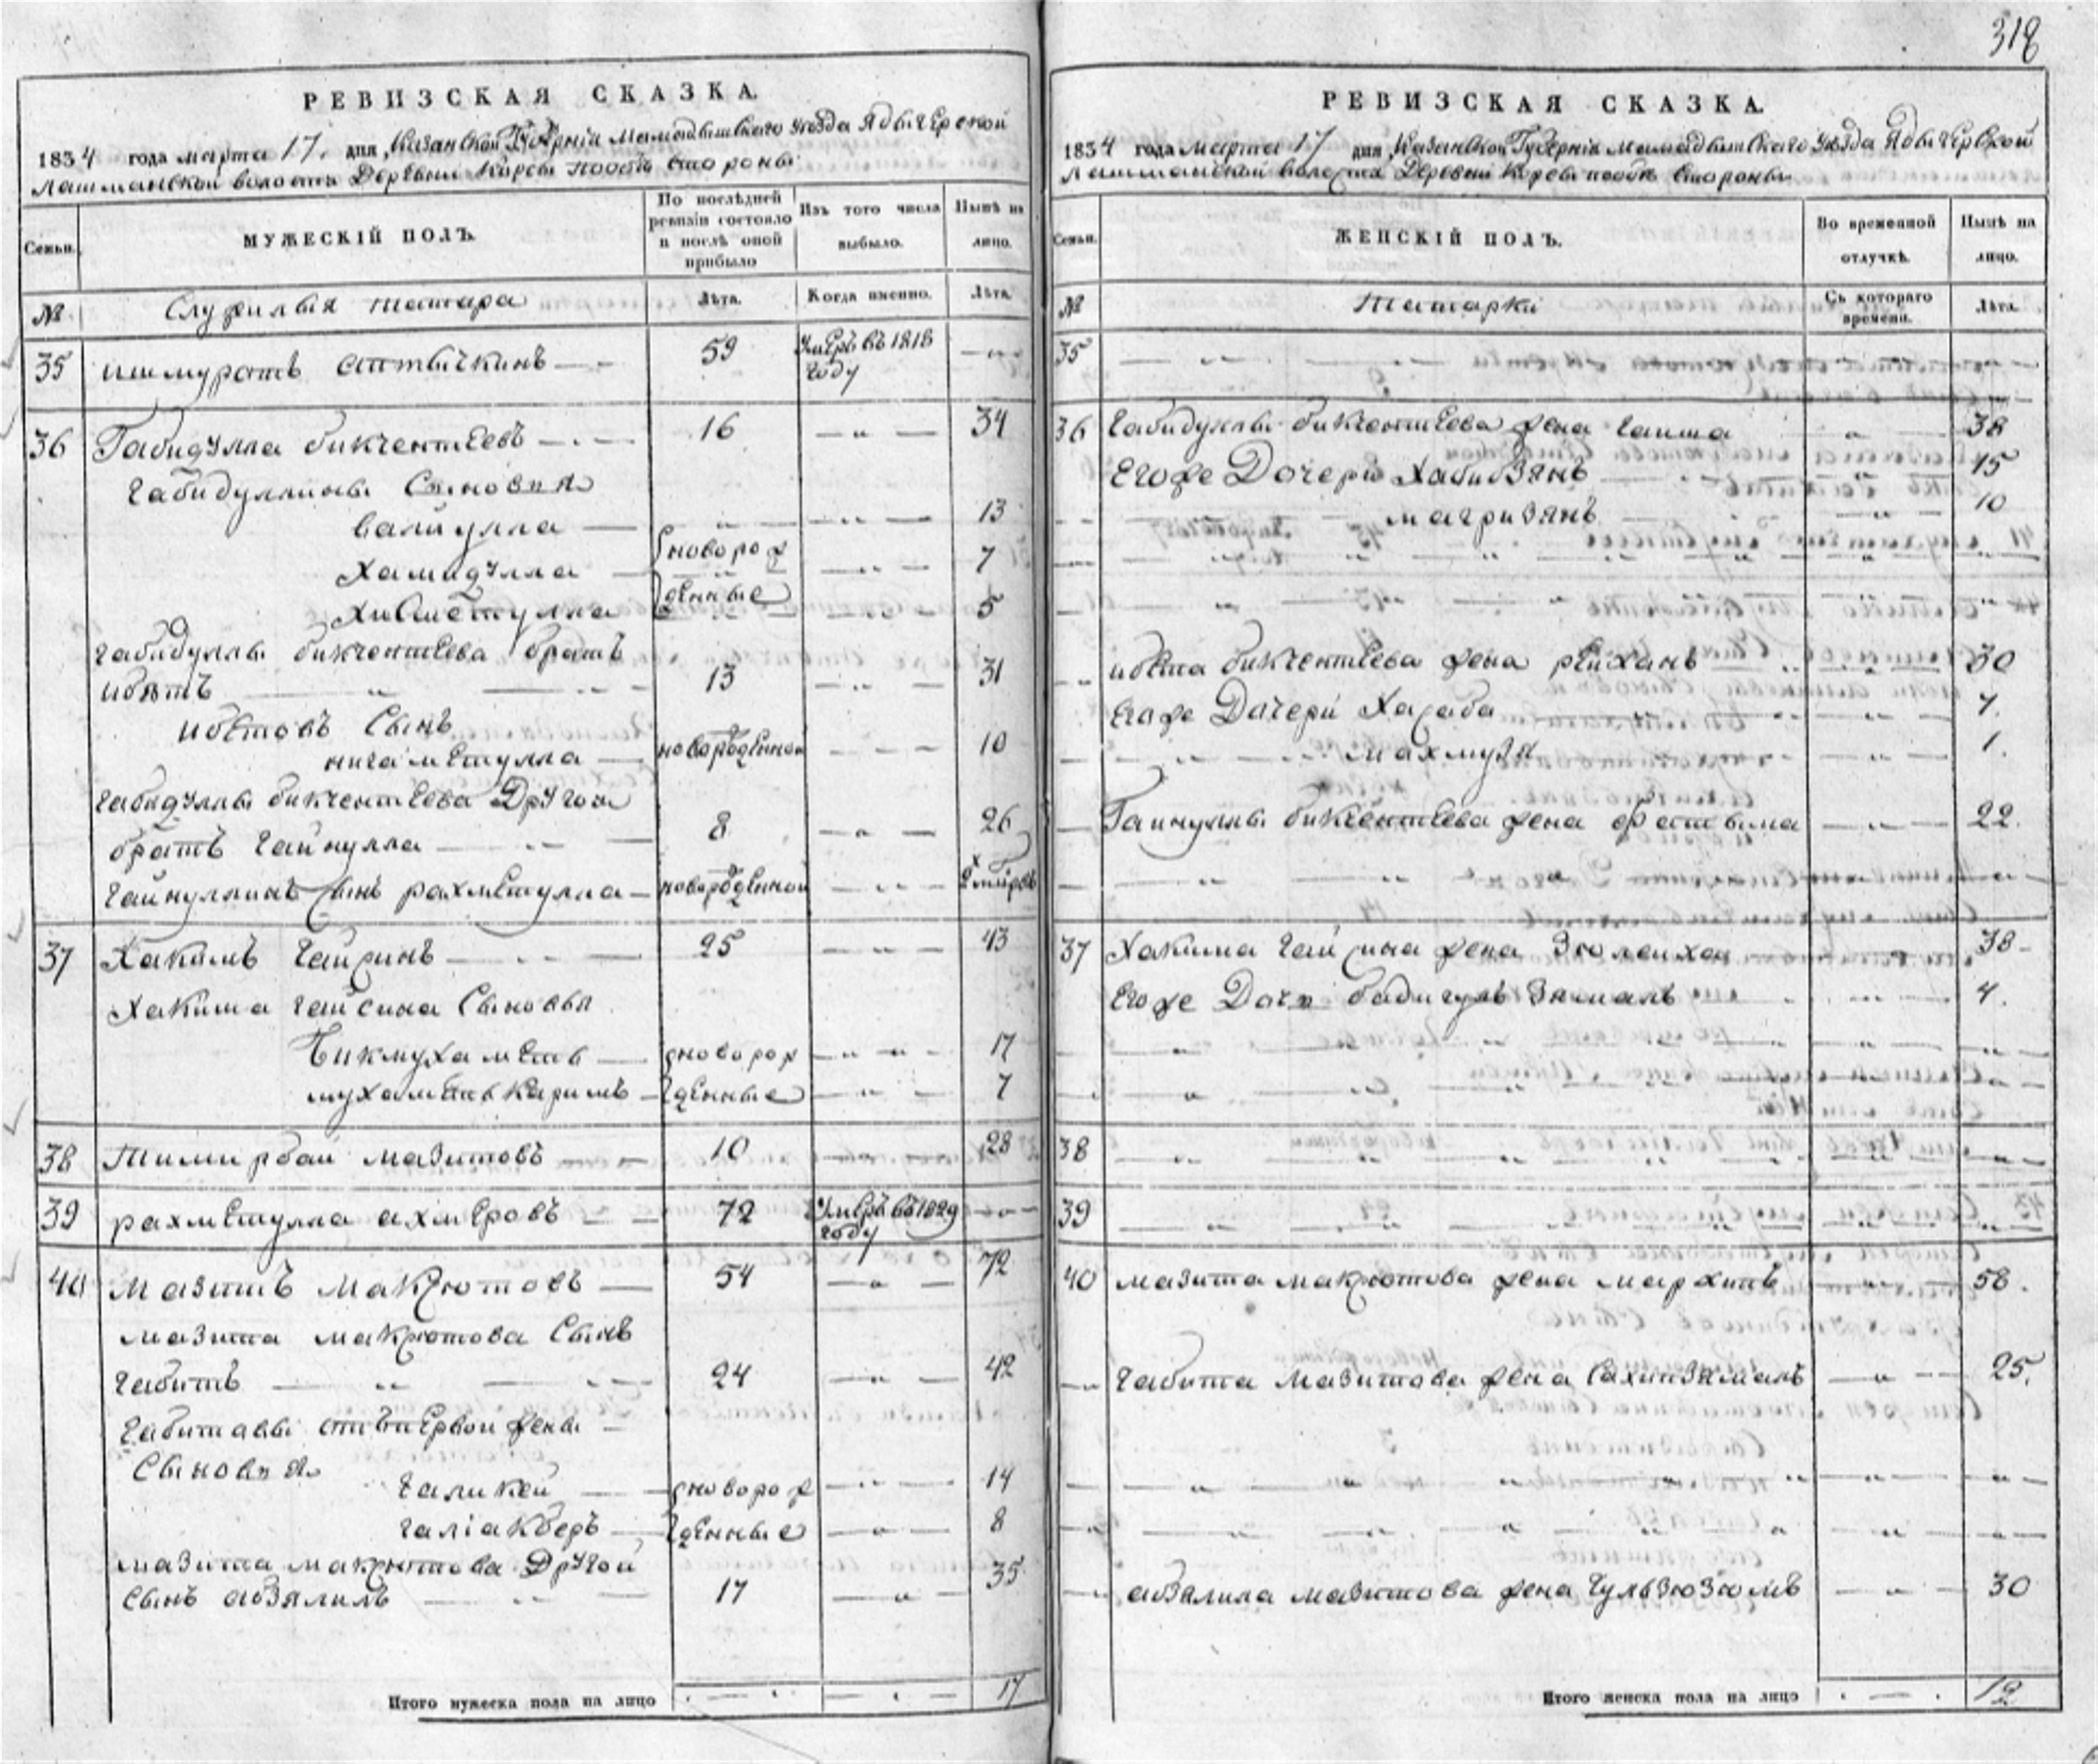 318
РЕВИЗСКАЯ СКАЗКА.
1834 года марта 17. дня Казанской Губерніи Мамадышскаго уезда Ядыгерской
Лашманской волости Деревни
МУЖЕСКІЙ ПОЛЪ.
Семьи. По послѣдней ревизіи состояло и послѣ оной прибыло Изъ того числа выбыло. Нынѣ на лицо.
№ Служилыя татара Лѣта. Когда именно. Лѣта.
35 ишмуратъ 59 умеръ въ 1818 году
36 Габидулла бикчентеевъ 16 34
габидуллины Сыновья
валиулла 13
хамидулла новорож 7
хисметулла денные 5
габидуллы бикчентеева братъ
ибятъ 13 31
ибетовъ Сынъ
нигаметулла новорожденной 10
габидуллы бикчентеева Другои
братъ гайнулла 8 26
гайнуллинъ сынъ рахметулла новорожденной
37 Хакимъ гайсинъ 25 43
Хакима гайсина Сыновья
Бикмухаметь новорож 17
мухаметькаримъ денные 7
38 Тимирбай мазитовъ 10 28
39 рахметулла ахмеровъ 72 умеръ въ 1829 году
40 мазитъ максютовъ 54 72
мазита максютова Сынъ
габитъ 24 42
габитавы отъ первои жены
Сыновья
галикей новорож 14
галіакберъ денные 8
мазита максютова Другой
сынъ абзялилъ 17 35
Итого мужеска пола на лицо 17
РЕВИЗСКАЯ СКАЗКА.
1834 года марта 17 дня Казанской Губерніи Мамадышскаго уезда Ядыгерской
Лашманской волости Деревни
ЖЕНСКІЙ ПОЛЪ.
Семьи. Во временной отлучкѣ. Нынѣ на лицо.
№ Татарки Съ котораго времени. Лѣта.
35
36 габидуллы бикчентеева жена гаиша 38
Егоже Дочери Хабибзянъ 15
магризянъ 10
ибета бикчентеева жена рейханъ 30
Егоже Дочери 7.
махмузя 1.
Гаинуллы бикчентеева жена фатыма 22.
37 Хакима гайсина жена Зюлейха 38
Егоже Дочь бадигулъ Зямалъ 4.
38
39
40 мазита максютова жена 58.
габита мазитова жена 25.
абзялила мазитова жена гульзюзюмъ 30
Итого женска пола на лицо 12